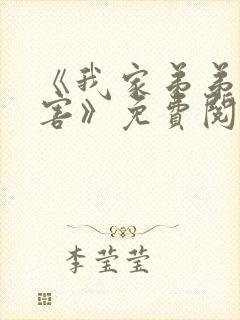 《我家弟弟
害》免費閱
李莹莹